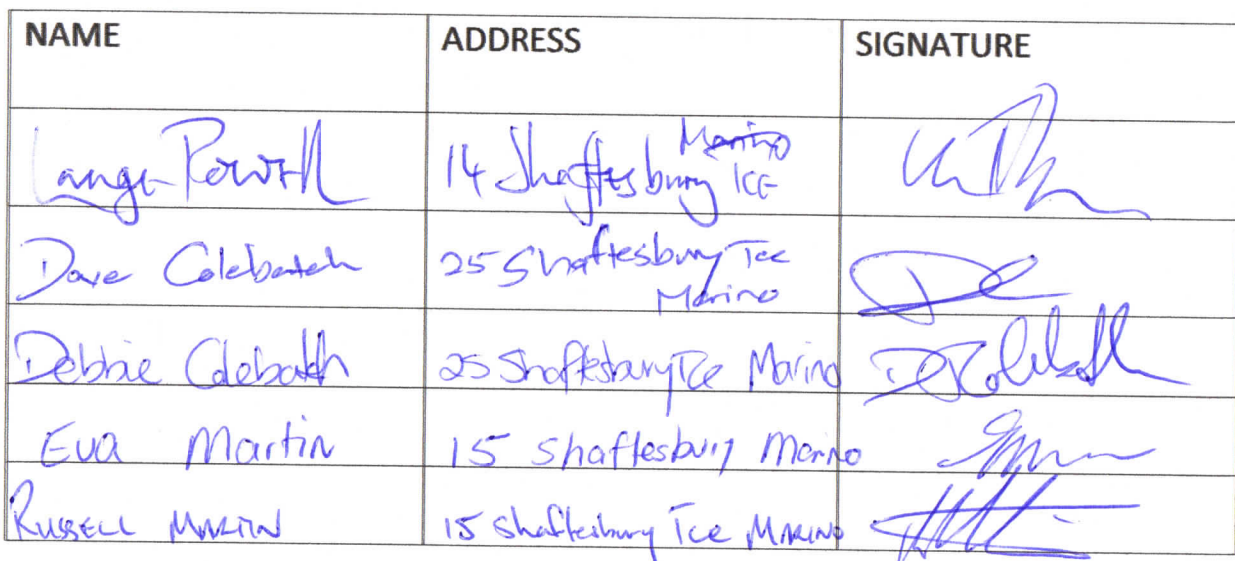 NAME ADDRESS SIGNATURE
Powell 14 Shaftesbury Tce Marino
Dave Colebatch 25 Shaftesbury Tce
Marino
Debbie Colebatch 25 Shaftesbury Tce Marino
Eva Martin 15 Shaftesbury Marino
RUSSELL MARTIN 15 Shaftesbury Tce MARINO